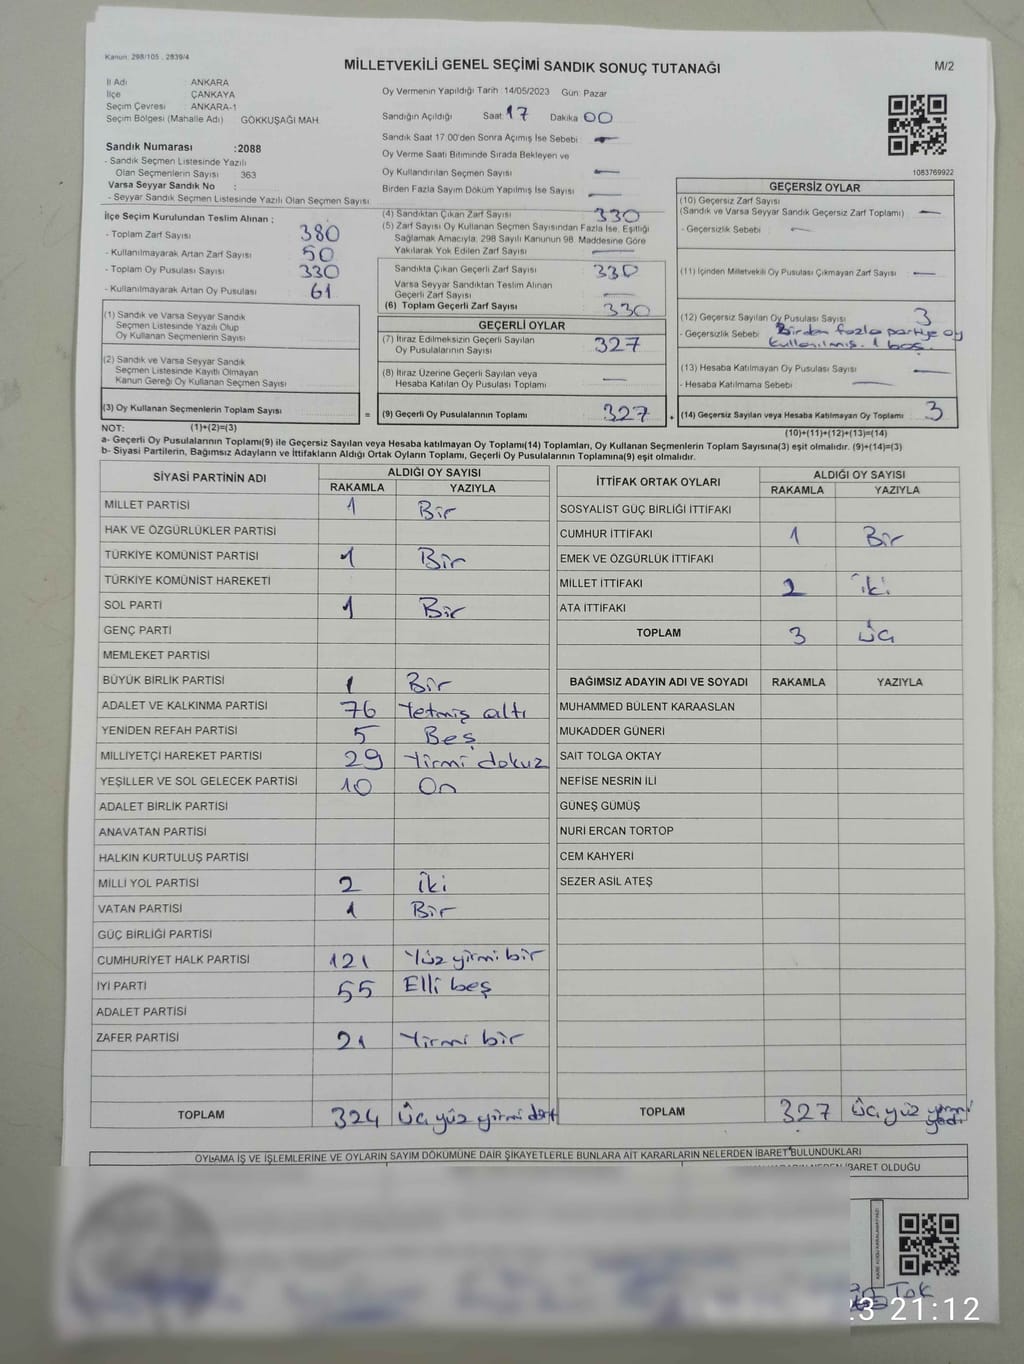 Kanun: 298/105 , 2839/4
MİLLETVEKİLİ GENEL SEÇİMİ SANDIK SONUÇ TUTANAĞI
M/2
İl Adı : ANKARA
İlçe : ÇANKAYA
Seçim Çevresi : ANKARA-1
Seçim Bölgesi (Mahalle Adı) : GÖKKUŞAĞI MAH.
Sandık Numarası :2088
- Sandık Seçmen Listesinde Yazılı
Olan Seçmenlerin Sayısı : 363
Varsa Seyyar Sandık No :
- Seyyar Sandık Seçmen Listesinde Yazılı Olan Seçmen Sayısı
Oy Vermenin Yapıldığı Tarih : 14/05/2023 Gün: Pazar
Sandığın Açıldığı Saat 17 Dakika 00
Sandık Saat 17.00'den Sonra Açımış İse Sebebi : —
Oy Verme Saati Bitiminde Sırada Bekleyen ve
Oy Kullandırılan Seçmen Sayısı : —
Birden Fazla Sayım Döküm Yapılmış İse Sayısı : —
1083769922
İlçe Seçim Kurulundan Teslim Alınan ;
- Toplam Zarf Sayısı : 380
- Kullanılmayarak Artan Zarf Sayısı : 50
- Toplam Oy Pusulası Sayısı : 330
- Kullanılmayarak Artan Oy Pusulası : 61
(1) Sandık ve Varsa Seyyar Sandık
Seçmen Listesinde Yazılı Olup
Oy Kullanan Seçmenlerin Sayısı :
(2) Sandık ve Varsa Seyyar Sandık
Seçmen Listesinde Kayıtlı Olmayan
Kanun Gereği Oy Kullanan Seçmen Sayısı :
(3) Oy Kullanan Seçmenlerin Toplam Sayısı : =
(4) Sandıktan Çıkan Zarf Sayısı : 330
(5) Zarf Sayısı Oy Kullanan Seçmen Sayısından Fazla İse, Eşitliği
Sağlamak Amacıyla, 298 Sayılı Kanunun 98. Maddesine Göre
Yakılarak Yok Edilen Zarf Sayısı : —
Sandıkta Çıkan Geçerli Zarf Sayısı : 330
Varsa Seyyar Sandıktan Teslim Alınan
Geçerli Zarf Sayısı : —
(6) Toplam Geçerli Zarf Sayısı : 330
GEÇERLİ OYLAR
(7) İtiraz Edilmeksizin Geçerli Sayılan
Oy Pusulalarının Sayısı : 327
(8) İtiraz Üzerine Geçerli Sayılan veya
Hesaba Katılan Oy Pusulası Toplamı : —
(9) Geçerli Oy Pusulalarının Toplamı : 327 +
GEÇERSİZ OYLAR
(10) Geçersiz Zarf Sayısı :
(Sandık ve Varsa Seyyar Sandık Geçersiz Zarf Toplamı) —
- Geçersizlik Sebebi : —
(11) İçinden Milletvekili Oy Pusulası Çıkmayan Zarf Sayısı : —
(12) Geçersiz Sayılan Oy Pusulası Sayısı : 3
- Geçersizlik Sebebi : Birden fazla partiye oy
kullanılmış. 1 boş.
(13) Hesaba Katılmayan Oy Pusulası Sayısı : —
- Hesaba Katılmama Sebebi : —
(14) Geçersiz Sayılan veya Hesaba Katılmayan Oy Toplamı : 3
NOT: (1)+(2)=(3)
(10)+(11)+(12)+(13)=(14)
a- Geçerli Oy Pusulalarının Toplamı(9) ile Geçersiz Sayılan veya Hesaba katılmayan Oy Toplamı(14) Toplamları, Oy Kullanan Seçmenlerin Toplam Sayısına(3) eşit olmalıdır. (9)+(14)=(3)
b- Siyasi Partilerin, Bağımsız Adayların ve İttifakların Aldığı Ortak Oyların Toplamı, Geçerli Oy Pusulalarının Toplamına(9) eşit olmalıdır.
SİYASİ PARTİNİN ADI ALDIĞI OY SAYISI
RAKAMLA YAZIYLA
MİLLET PARTİSİ 1 Bir
HAK VE ÖZGÜRLÜKLER PARTİSİ
TÜRKİYE KOMÜNİST PARTİSİ 1 Bir
TÜRKİYE KOMÜNİST HAREKETİ
SOL PARTİ 1 Bir
GENÇ PARTİ
MEMLEKET PARTİSİ
BÜYÜK BİRLİK PARTİSİ 1 Bir
ADALET VE KALKINMA PARTİSİ 76 Yetmiş altı
YENİDEN REFAH PARTİSİ 5 Beş
MİLLİYETÇİ HAREKET PARTİSİ 29 Yirmi dokuz
YEŞİLLER VE SOL GELECEK PARTİSİ 10 On
ADALET BİRLİK PARTİSİ
ANAVATAN PARTİSİ
HALKIN KURTULUŞ PARTİSİ
MİLLİ YOL PARTİSİ 2 İki
VATAN PARTİSİ 1 Bir
GÜÇ BİRLİĞİ PARTİSİ
CUMHURİYET HALK PARTİSİ 121 Yüz yirmi bir
İYİ PARTİ 55 Elli beş
ADALET PARTİSİ
ZAFER PARTİSİ 21 Yirmi bir
TOPLAM 324 Üç yüz yirmi dört
İTTİFAK ORTAK OYLARI ALDIĞI OY SAYISI
RAKAMLA YAZIYLA
SOSYALİST GÜÇ BİRLİĞİ İTTİFAKI
CUMHUR İTTİFAKI 1 Bir
EMEK VE ÖZGÜRLÜK İTTİFAKI
MİLLET İTTİFAKI 2 İki
ATA İTTİFAKI
TOPLAM 3 Üç
BAĞIMSIZ ADAYIN ADI VE SOYADI RAKAMLA YAZIYLA
MUHAMMED BÜLENT KARAASLAN
MUKADDER GÜNERİ
SAİT TOLGA OKTAY
NEFİSE NESRİN İLİ
GÜNEŞ GÜMÜŞ
NURİ ERCAN TORTOP
CEM KAHYERİ
SEZER ASIL ATEŞ
TOPLAM 327 Üç yüz yirmi yedi
OYLAMA İŞ VE İŞLEMLERİNE VE OYLARIN SAYIM DÖKÜMÜNE DAİR ŞİKAYETLERLE BUNLARA AİT KARARLARIN NELERDEN İBARET BULUNDUKLARI
İBARET OLDUĞU
Tok
23 21:12